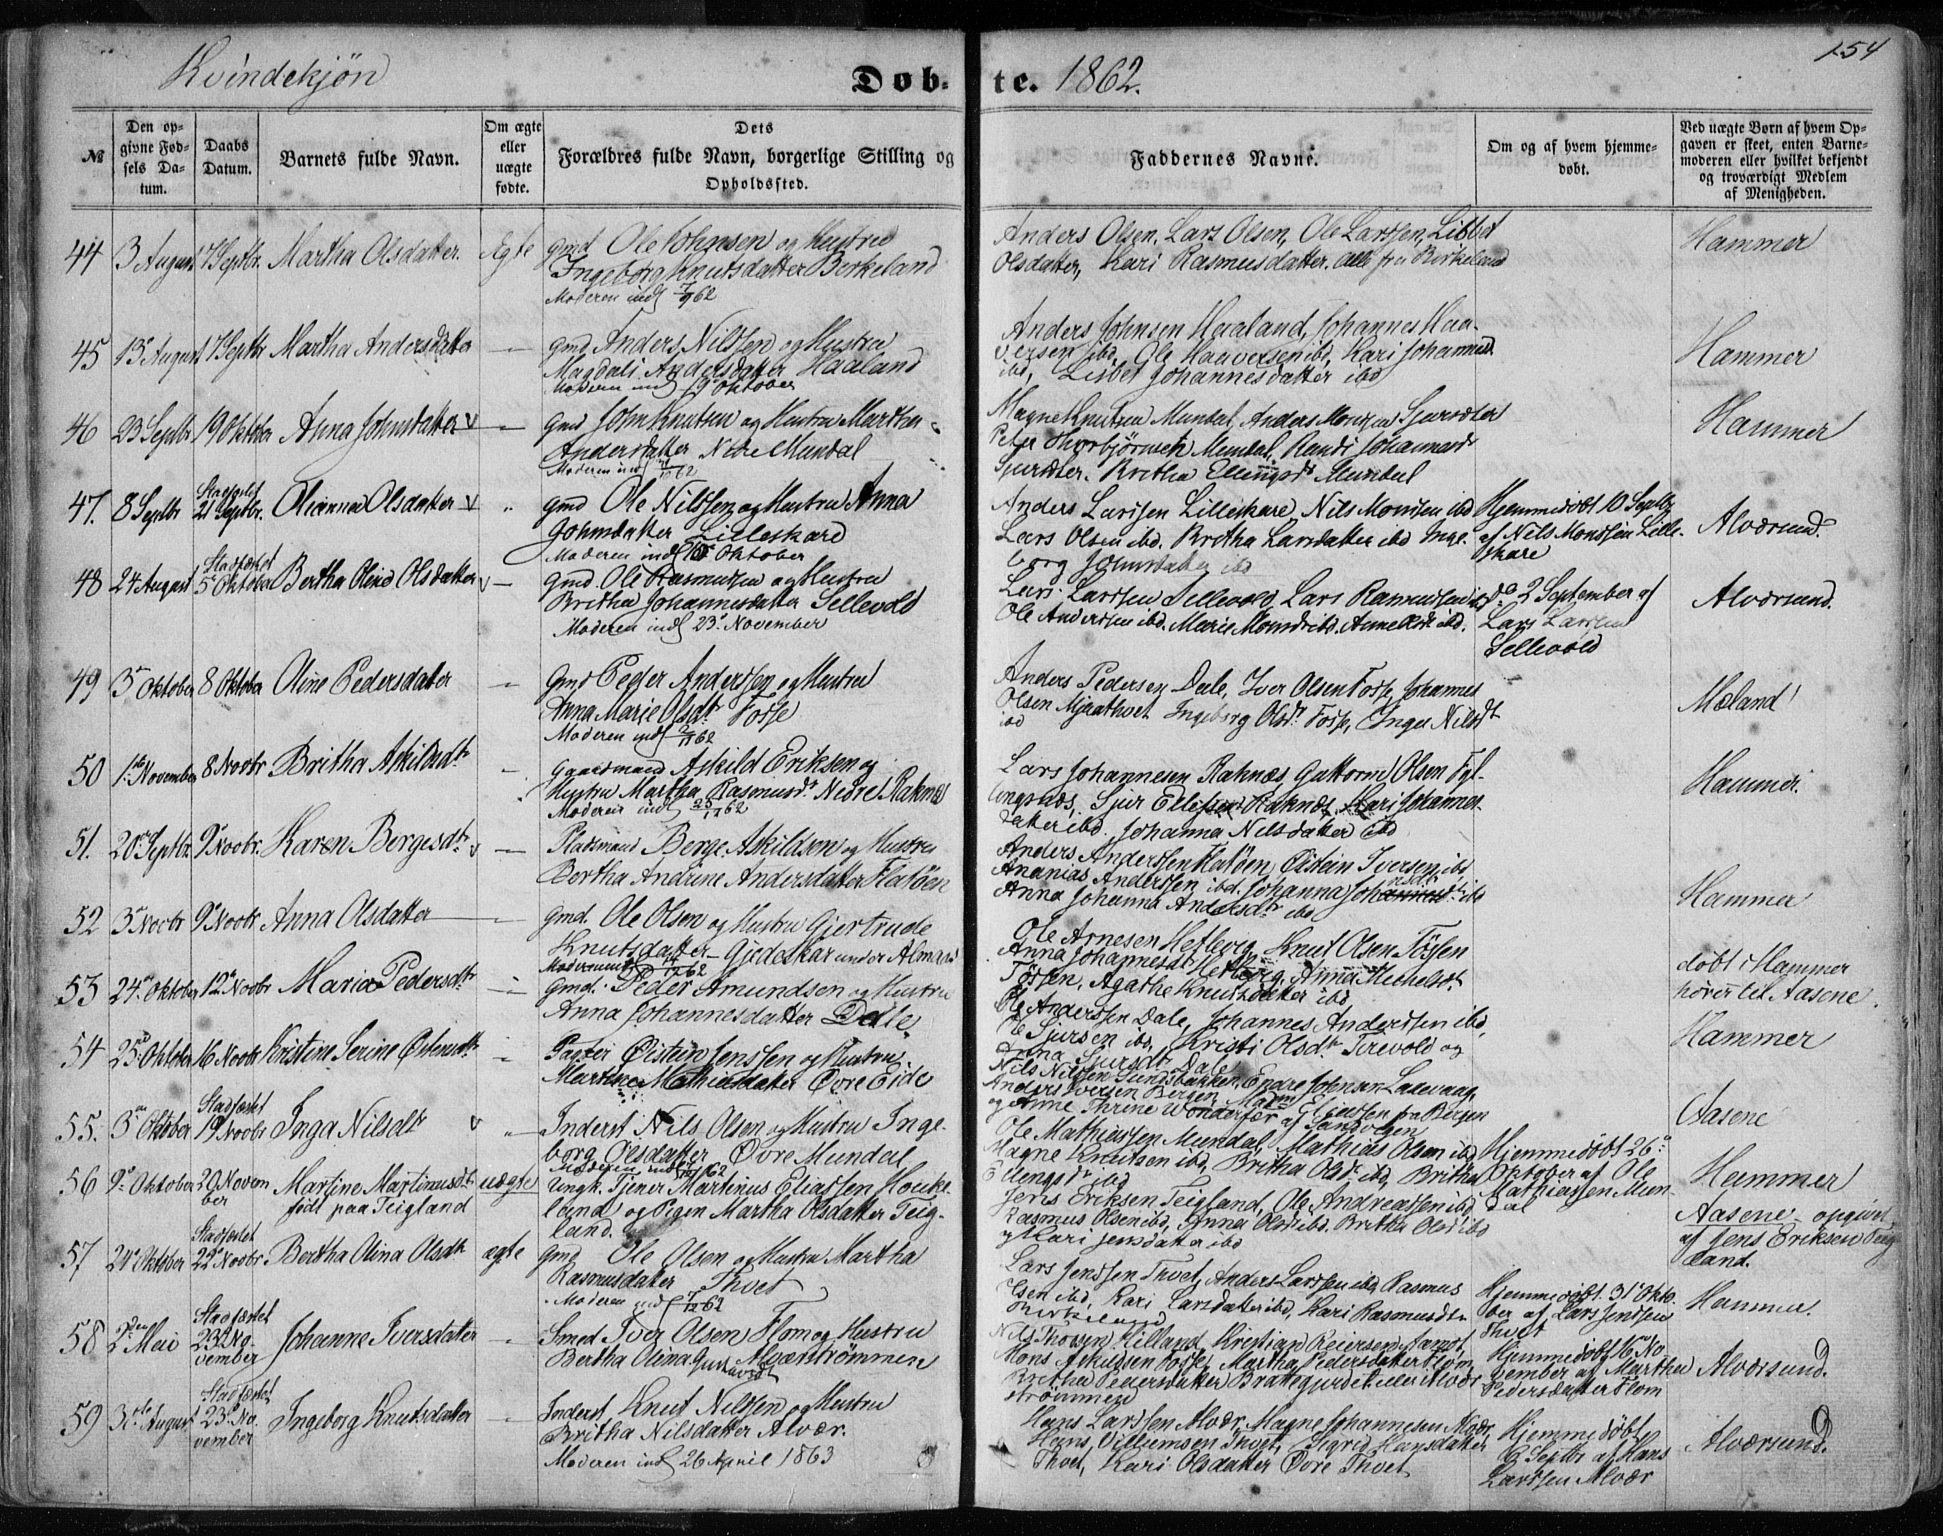 154
Kvindekjøn
Døbte. 1862.
№
Den opgivne Fødsels Datum.
Daabs Datum.
Barnets fulde Navn.
Om ægte eller uægte fødte.
Dets Forældres fulde Navn, borgerlige Stilling og Opholdssted.
Faddernes Navne.
Om og af hvem hjemmedøbt.
Ved uægte Børn af hvem Opgaven er skeet, enten Barnemoderen eller hvilket bekjendt og troværdigt Medlem af Menigheden.
44 3 August 7 Septbr. Martha Olsdatter. Ægte gmd Ole Johnsen og Hustru
Ingeborg Knutsdatter Birkeland
Moderen indl 7/9 62
Anders Olsen. Lars Olsen, Ole Larssen, Libbet
Olsdatter, Kari Rasmusdatter. alle fra Birkeland
Hammer
45 13 August 7 Septbr Martha Andersdatter — gmd Anders Nilssen og Hustru
Magdali Andersdatter Haaland
Moderen indl Oktober
Anders Johnsen Haaland, Johannes Haa-
versen ibd, Ole Haaversen ibd, Kari Johannesd
ibd, Lisbet Johannesdatter ibd
Hammer
46 23 Septbr 19 Oktober Anna Johnsdatter v — gmd John Knutsen og Hustru Martha
Andersdatter Nedre Mundal
Moderen indl
Magne Knutsen Mundal, Anders Monsen
Peter Thorbjørnsen Mundal, Randi Johannesdr
Britha Ellingsdr Mundal
Hammer
47. 8 Septbr Stadfæstet
21 Septbr. Olianna Olsdatter v „ gmd Ole Nilssen og Hustru Anna
Johnsdatter Lilleskare
Moderen indl Oktober
Anders Larssen Lilleskare, Nils Monsen ibd
Lars Olsen ibd. Britha Larsdatter ibd Inge-
borg Johnsdatter ibd
Hjemmedøbt 10 Septbr
af Nils Monssen Lille-
skare
Alværsund.
48 24 August Stadfæstet
5 Oktober Bertha Oline Olsdatter v — gmd. Ole Rasmussen og Hustru
Britha Johannesdatter Sellevold
Moderen indl 23 November
Lars Larssen Sellevold, Lars Rasmussen
Ole Anderssen ibd. Marie Monsdr ibd.
do 2 September af
Lars Larssen
Sellevold
Alværsund.
49 3 Oktober 8 Oktober Oline Pedersdatter — gmd Peder Anderssen og Hustru
Anna Marie Olsdr Fosse
Moderen indl 2/11 62
Anders Pedersen Dale, Iver Olsen Fosse, Johannes
Olsen Mjaathvet Ingeborg Olsdr Fosse, Inger Nilsdr
ibd
Mæland
50 1. November 8 Novbr Britha Askildsdtr — gaardmand Askild Eriksen og
Hustru Martha Rasmusdr Nedre Raknæs
Moderen indl 25/12 62
Lars Johannesen Raknæs, Guttorm Olsen Fyl-
lingsnæs, Sjur Ellefsen Raknæs, Kari Johannes-
datter ibd. Johanna Nilsdatter ibd
Hammer.
51. 20 Septbr. 9 Novbr. Karen Bergesdtr v — Pladsmand Berge Askildsen og Hustru
Bertha Andrine Andersdatter Flatøen
Anders Anderssen Flatøen, Øistein Iversen ibd
Ananias Anderssen ibd. Johanna ibd
Anna Johanna Andersdr ibd
Hammer
52 3 Novbr 9 Novbr Anna Olsdatter — gmd. Ole Olsen og Hustru Gjertrude
Knutsdatter Gjedeskar under Almaas
Moderen indl 62
Ole Arnesen Hetlevig Knut Olsen Tøssen
Anna Johannesdr Hetlevig, Anna Michelsdr.
Tøssen, Agathe Knutsdatter ibd
døbt i Hammer
hører til Aasene.
53 24. Oktober 12 Novbr Maria Pedersdtr — gmd. Peder Amundsen og Hustru
Anna Johannesdatter Dale
Ole Anderssen Dale, Johannes Anderssen ibd,
Ole Sjursen ibd, Kristi Olsdtr Tirevold og
Anna Sjursdtr Dale
Hammer
54 25 Oktober 16 Novbr Kristine Serine Østensdtr „ Øistein Jenssen og Hustru
Martine Mathiasdatter Øvre Eide
Nils Nilssen Sundsbakken, Endre Johnsen
Anders Iversen Bergen,
og Anne Thrine fra Bergen
Aasene
55. 3 Oktober Stadfæstet
19 Novbr Inga Nilsdtr v „ Inderst Nils Olsen og Hustru Inge-
borg Olsdatter Øvre Mundal
Moderen indl 62
Ole Mathiassen Mundal, Mathias Olsen ibd
Magne Knutsen ibd, Britha Olsdr ibd, Britha
Ellingsdr ibd
Hjemmedøbt 26
Oktober af Ole
Mathiassen Mun-
dal
Hammer
56 9 Oktober 20 Novem
ber Martine Martinusdtr
født paa Teigland uægte Ungk. Tjener Martinus Eliassen Houke-
land og Pigen Martha Olsdatter Teig-
land.
Jens Eriksen Teigland, Ole Andreassen ibd
Rasmus Olsen ibd, Anna Olsdr ibd. Britha Olsd ibd
og Kari Jensdatter ibd
Aasene opgivet
af Jens Eriksen Teig
land.
57 24 Oktober Stadfæstet
22 Novbr Bertha Olina Olsdtr ægte gmd Ole Olsen og Hustru Martha
Rasmusdatter Thvet
Moderen indl 7/12 62
Lars Jenssen Thvet, Anders Larssen ibd, Rasmus
Olsen ibd, Kari Larsdatter ibd, Kari Rasmusdtr
Hjemmedøbt 31 Okto-
ber af Lars Jenssen
Thvet
Hammer.
58 2den Mai Stadfæstet
23 No-
vember Johanne Iversdatter „ Smed Iver Olsen Flom og Hustru
Bertha Olina Alværstrømmen
Nils Hilland, Kristian Reiersen
Mons Askildsen Fosse, Martha Pedersdatter Flom
Britha Pedersdatter Brattegjerdet eller Alvær
strømmen
Hjemmedøbt 16 No
vember af Martha
Pedersdatter Flom
Alværsund.
59 31 August Stadfæstet
23 No
vember Ingeborg Knutsdatter — Inderst Knut Nilssen og Hustru
Britha Nilsdatter Alvær.
Moderen indl 26 April 1863
Hans Larssen Alvær, Magne Johannesen Alvær
Hans Villumsen Thvet, Sigrid Hansdatter
Thvet, Kari Olsdatter Øvre Thvet
Hjemmedøbt
6 Septbr af Hans
Larssen Alvær
Alværsund.